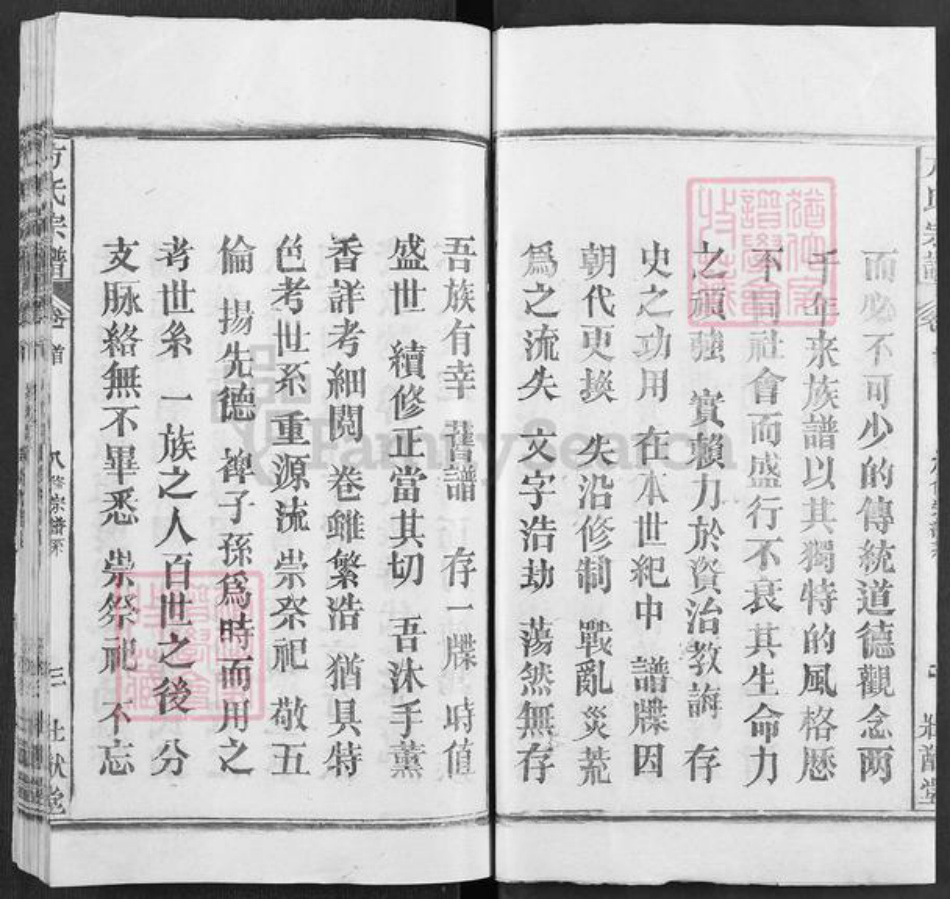 而必不可少的傳統道德觀念两
千年来族譜以其獨特的風格歷
不同社會而盛行不衰其生命力
之頑強 實賴力於資治教誨 存
史之功用 在本世紀中 譜牒因
朝代更换 失沿修制 戰亂災荒
爲之流失 文字浩劫 蕩然無存
吾族有幸 舊譜 存一牒 時值
盛世 續修正當其切 吾沐手薰
香詳考細閱 卷雖繁浩 猶具特
色考世系重源流 崇祭祀 敬五
倫 揚先德 裨子孫爲時而用之
考世系 一族之人百世之後 分
支脉絡無不畢悉 崇祭祀 不忘
方氏宗譜 卷首
宗譜序
三
FamilySearch